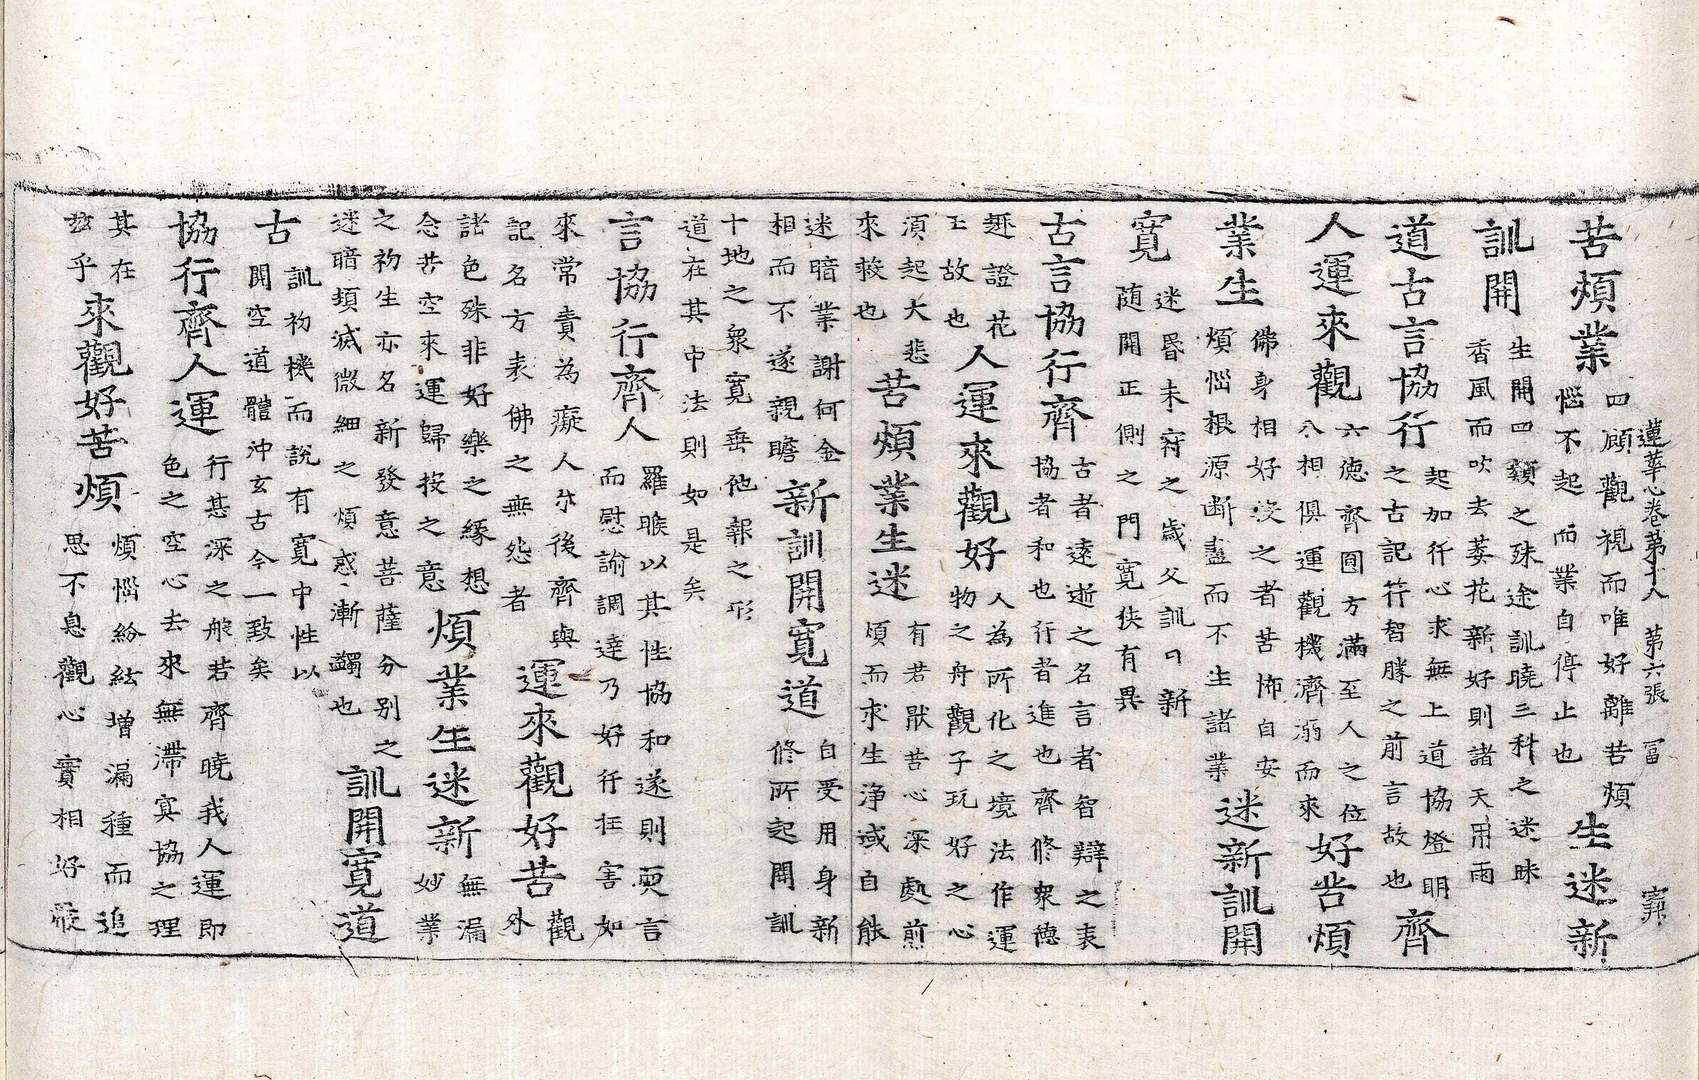 蓮華心卷第十八 第六張 冨
苦煩業
四顧觀視而唯好離苦煩
惱不起而業自停止也
生迷新
訓開
生開四類之殊途訓曉三科之迷昧
香風而吹去萎花新好則諸天用雨
道古言協行
起加行心求無上道協燈明
之古記符智勝之前言故也
齊
人運來觀
六德齊圓方滿至人之位
八相俱運觀機濟溺而來
好苦煩
業生
佛身相好没之者苦怖自安
煩惱根源断盡而不生諸業
迷新訓開
寬
迷昬未寤之歳父訓 新
随開正側之門寬狹有異
古言協行齊
古者遠逝之名言者智辯之表
協者和也行者進也齊修衆德
趣證花
王故也
人運來觀好
人為所化之境法作運
物之舟觀子玩好之心
須起大悲
來救也
苦煩業生迷
有若猒苦心深處煎
煩而求生浄域自能
迷暗業謝何金
相而不遂親瞻
新訓開寬道
自受用身新
修所起開訓
十地之衆寬垂他報之形
道在其中法則如是矣
言協行齊人
羅睺以其性協和遂則耎言
而慰諭調達乃好行狂害如
來常責為癡人尒後齊與
記名方表佛之無怨者
運來觀好苦
觀
外
諸色殊非好樂之緣想
念苦空來運歸按之意
煩業生迷新
無漏
妙業
之初生亦名新發意菩薩分别之
迷暗頊滅微細之煩惑漸蠲也
訓開寬道
古
訓初機而說有寬中性以
開空道體沖玄古今一致矣
協行齊人運
行甚深之般若齊曉我人運即
色之空心去來無滯㝠協之理
其在
玆乎
來觀好苦煩
煩惱紛紜増漏種而追
思不息觀心實相好嚴